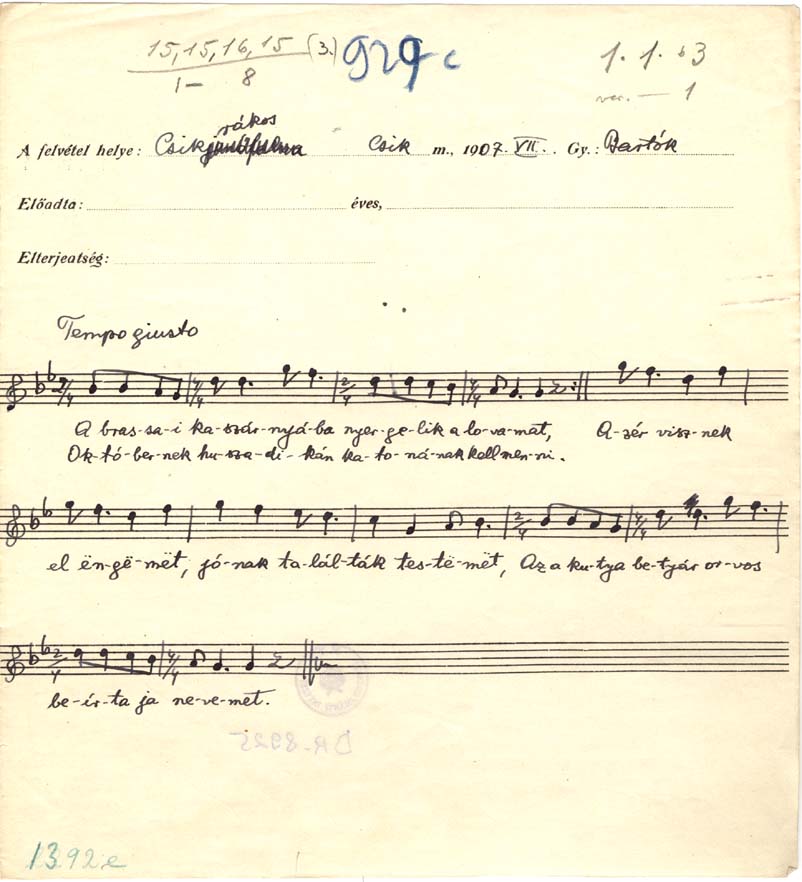 15, 15, 16, 15 (3.) 929 c 1. 1. b3
1– 8 var. — 1
rákos
A felvétel helye: Csik Csik m., 1907. VII. . Gy.: Bartók
Előadta: éves,
Elterjeatség:
Tempo giusto
2/4 4/4 2/4 4/4
A bras-sa-i ka-szár-nyá-ba nyer-ge-lik a lo-va-mat, A-zér visz-nek
Ok-tó-ber-nek hu-sza-di-kán ka-to-ná-nak kell men-ni.
2/4 4/4
el ën-gë-mët, jó-nak ta-lál-ták tes-të-mët, Az a ku-tya be-tyár or-vos
2/4 4/4
be-ír-ta ja ne-ve-met.
DR-8925
1392e